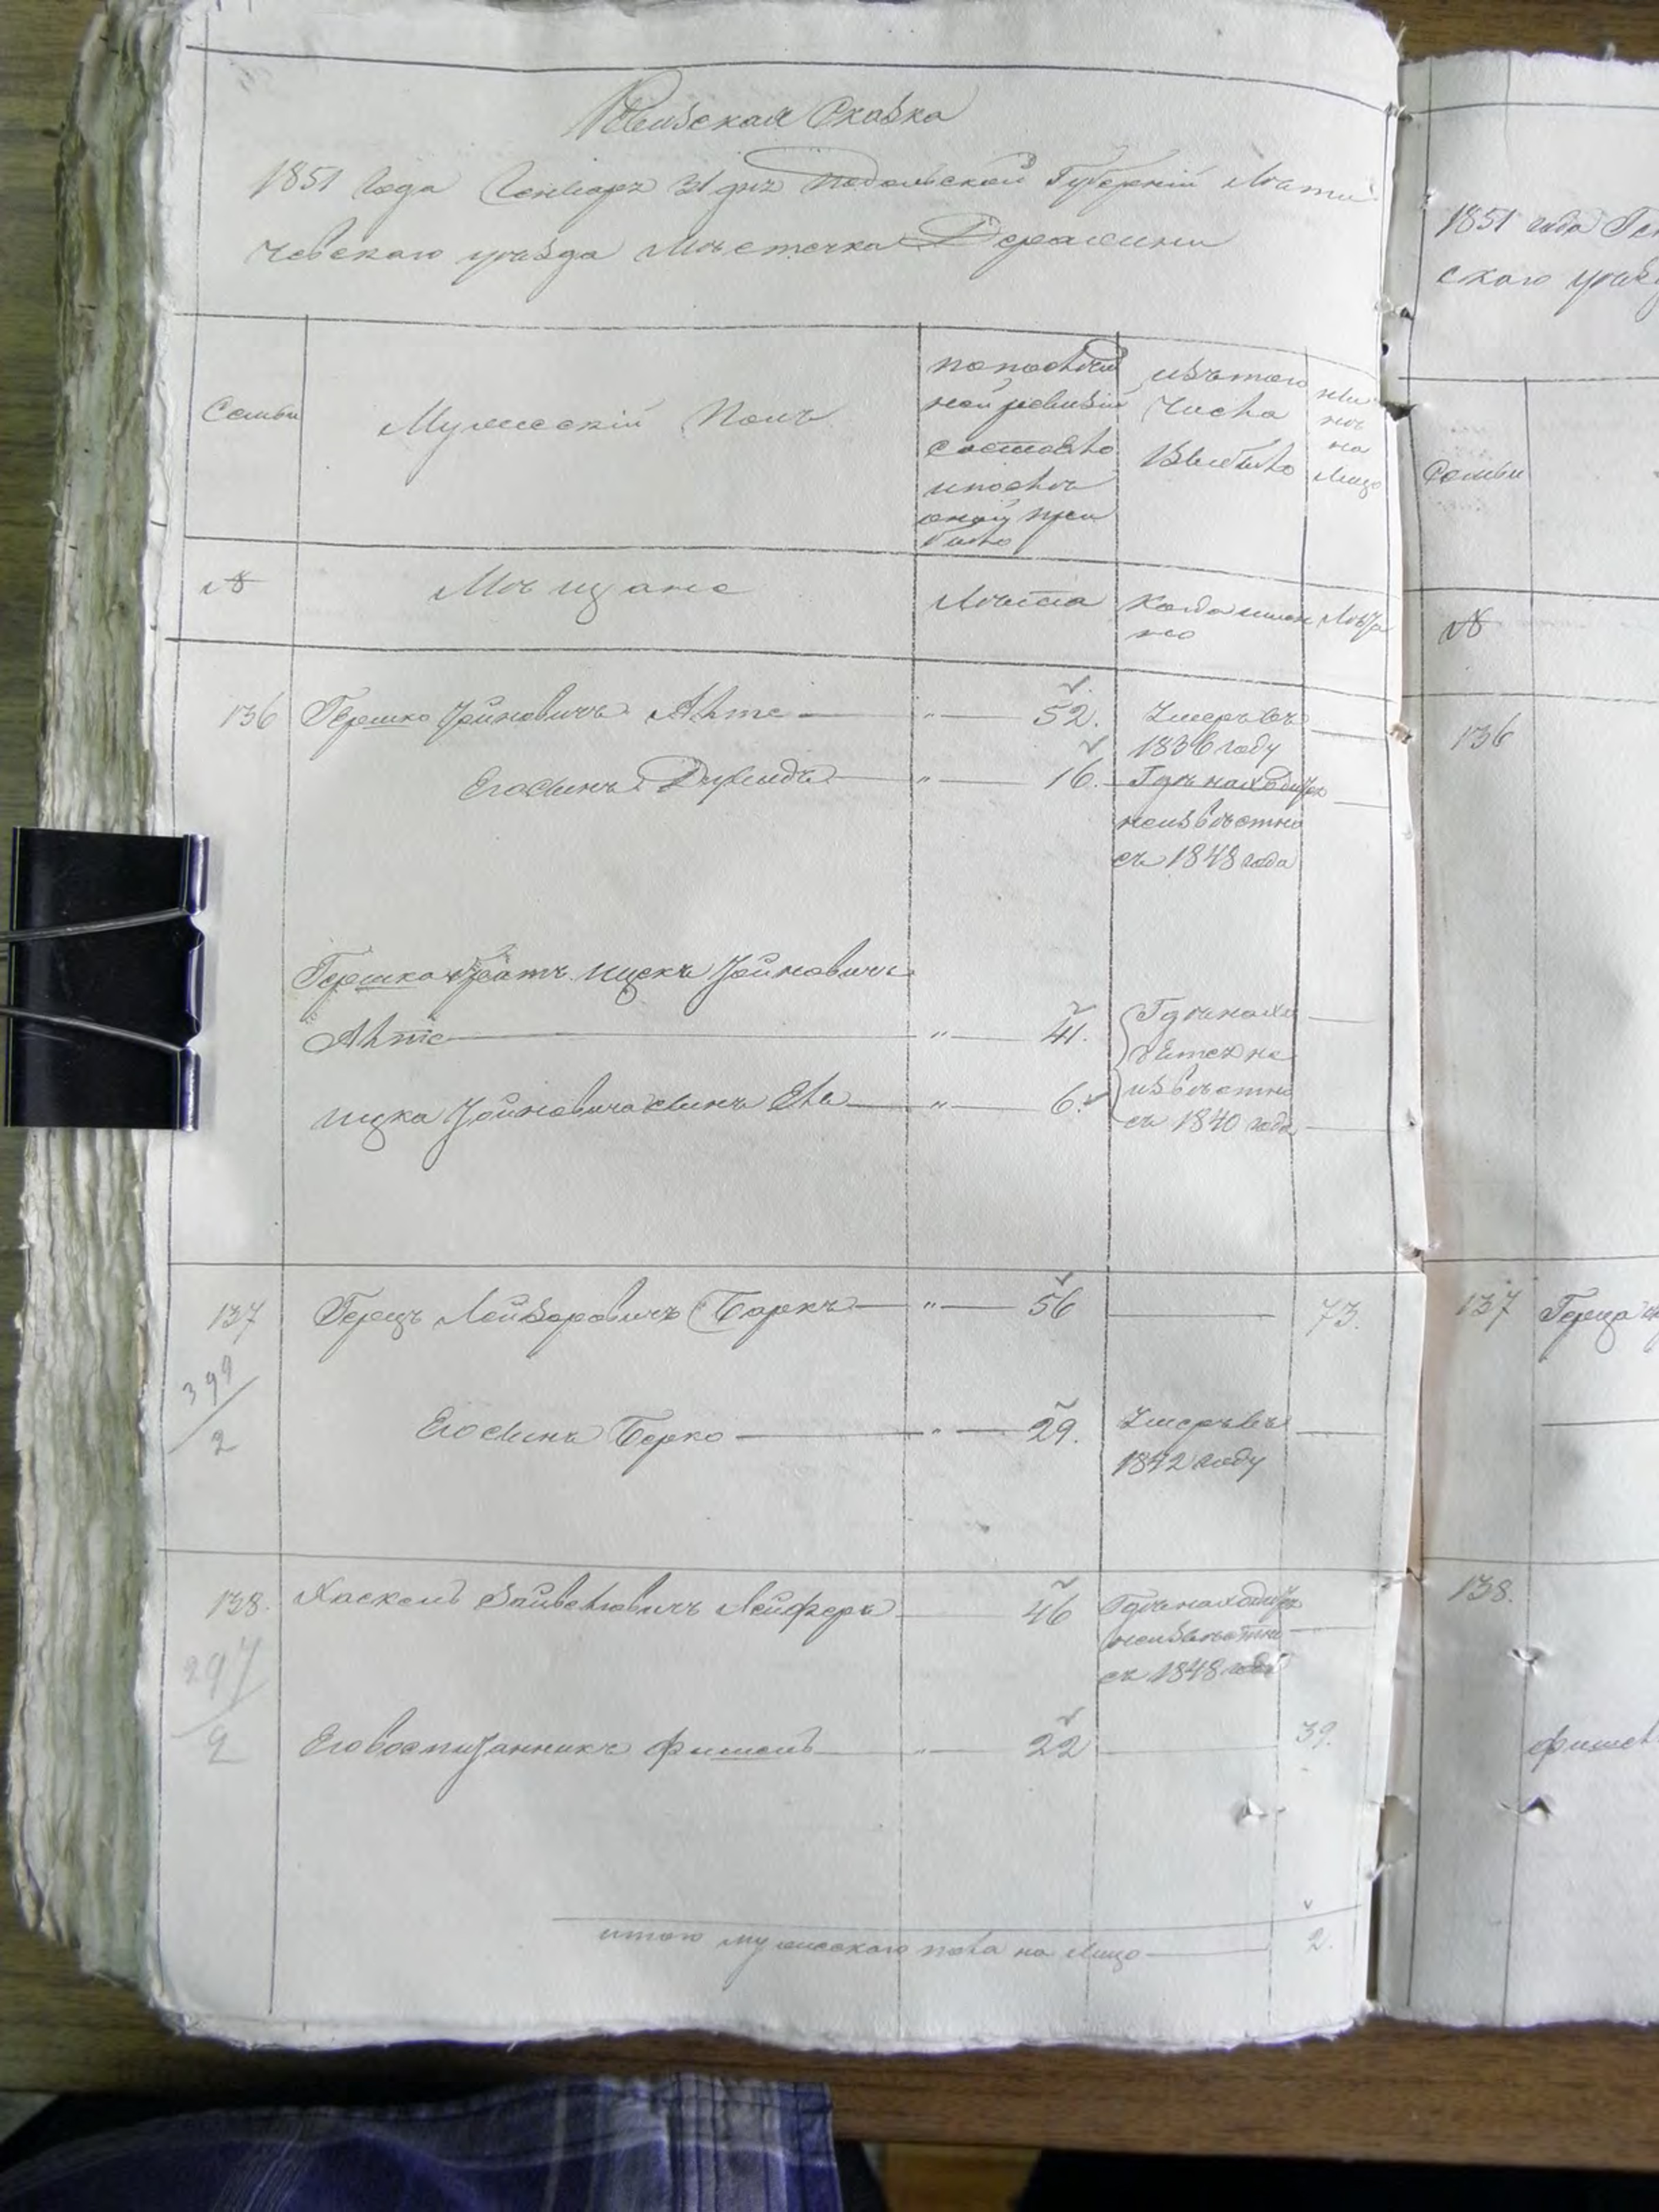 Ревизская Сказка
1851 Года Генваря 31 дня Подольской Губерніи Лати
чевскаго уѣзда Мѣстечка Деражни
Семьи
Мужескій Полъ
По послѣд
ней ревизіи
состояло
и послѣ
оной при
было
Изъ того
Числа
Выбыло
Ны
нѣ
на
Лицо
№
Мѣщане
Лѣта
Когда имен
но
Лѣта
136 Гершко Іойновичъ Альте " 52. Умеръ въ
1836 году
Его Сынъ Давидъ " 16. Гдѣ находится
неизвѣстно
съ 1848 года
Гершка братъ Ицекъ Іойновичъ
Альте " 41. Гдѣ нахо
дятся не
Ицка Іойновича Сынъ Еля " 6. извѣстно
съ 1840 года
137 Герецъ Лейзоровичъ Боркъ " 56 73.
399/2
Его Сынъ Берко " 29. Умеръ въ
1842 году
138. Хаскель Зайвеловичъ Лейферъ 46 Гдѣ находится
неизвѣстно
съ 1848 года
297/2
Его воспитанникъ Фишель " 22 39.
Итого мужескаго пола на Лицо 2.
1851 года Ге
скаго уѣзд
Семьи
№
136
137 Гереца
138.
Фишел